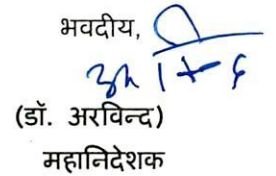 भवदीय,
(डॉ. अरविन्द)
महानिदेशक